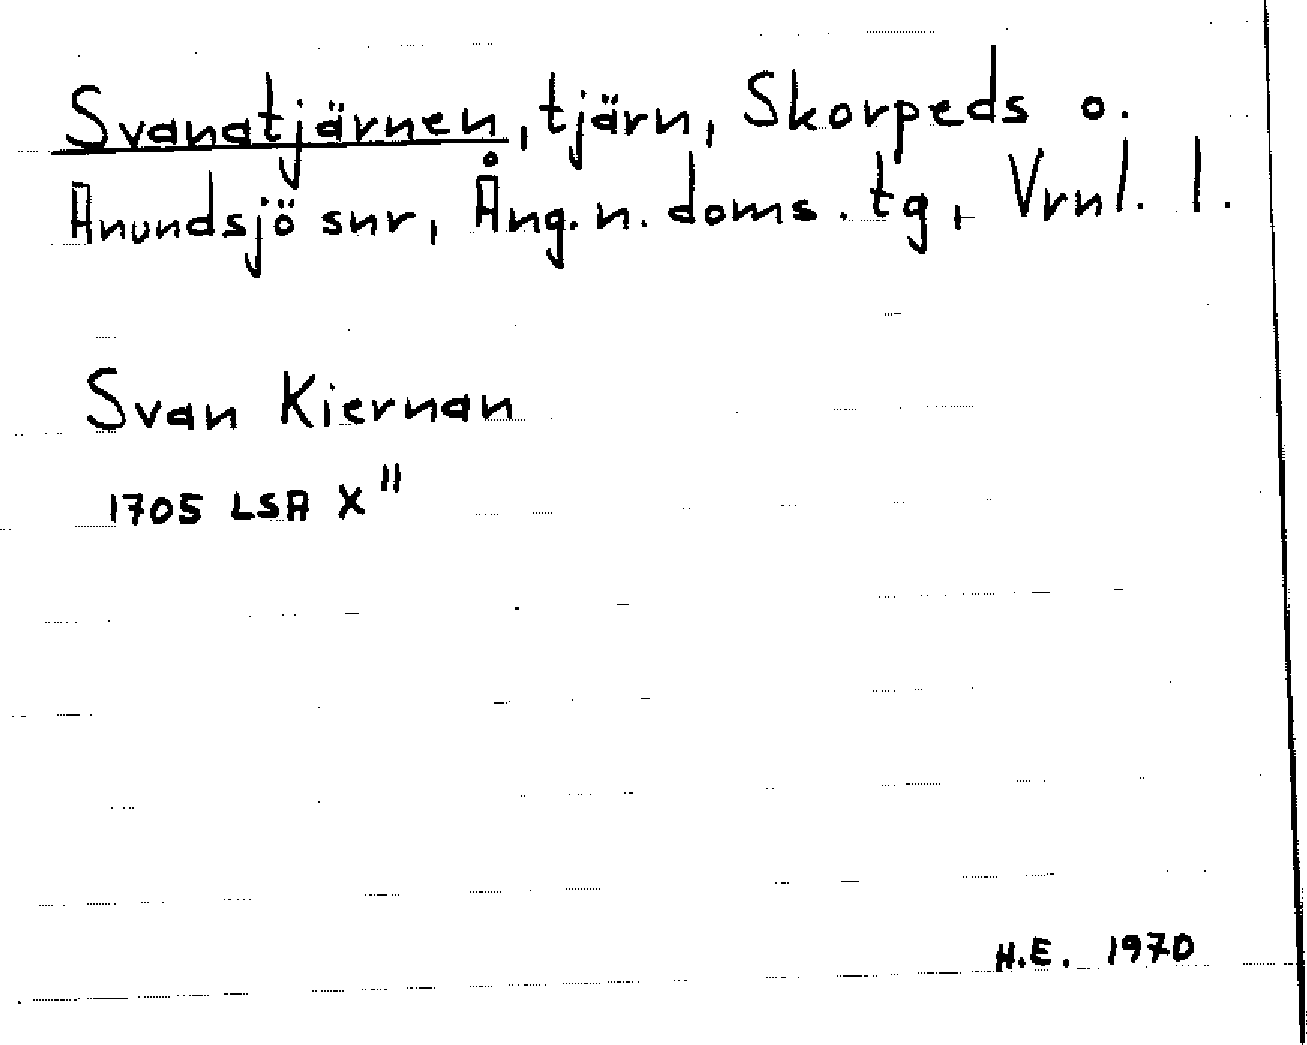 Svanatjärnen, tjärn, Skorpeds o.
Anundsjö snr, Ång. n. doms. tg, Vrnl. l.
Svan Kiernan
1705 LSA X"
H.E. 1970